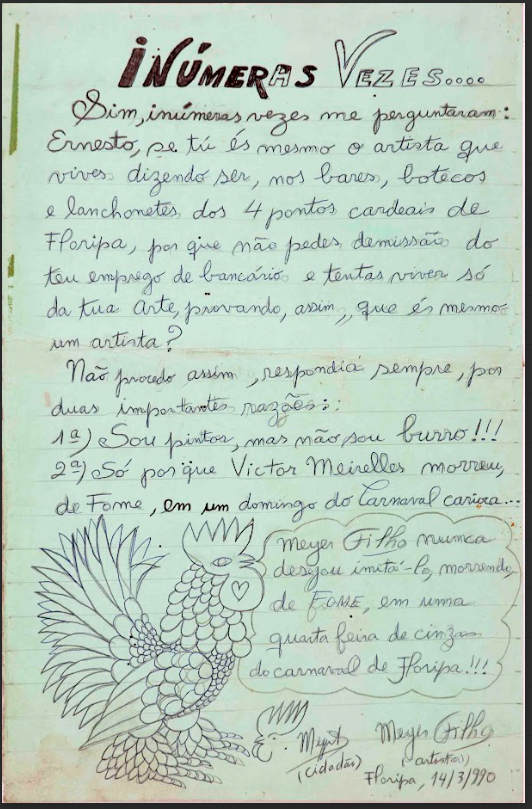 INÚMERAS VEZES....
Sim, inúmeras vezes me perguntaram:
Ernesto, se tú és mesmo o artista que
vives dizendo ser, nos bares, botecos
e lanchonetes dos 4 pontos cardeais de
Floripa, por que não pedes demissão do
teu emprego de bancário e tentas viver só
da tua Arte, provando, assim, que és mesmo
um artista?
Não procedo assim, respondia sempre, por
duas importantes razões:
1ª) Sou pintor, mas não sou burro!!!
2ª) Só porque Victor Meirelles morreu,
de Fome, em um domingo do Carnaval carioca...
Meyer Filho nunca
desejou imitá-lo, morrendo,
de FOME, em uma
quarta feira de cinzas
do carnaval de Floripa!!!
(cidadão)
Meyer Filho
(artista)
Floripa, 14/3/990